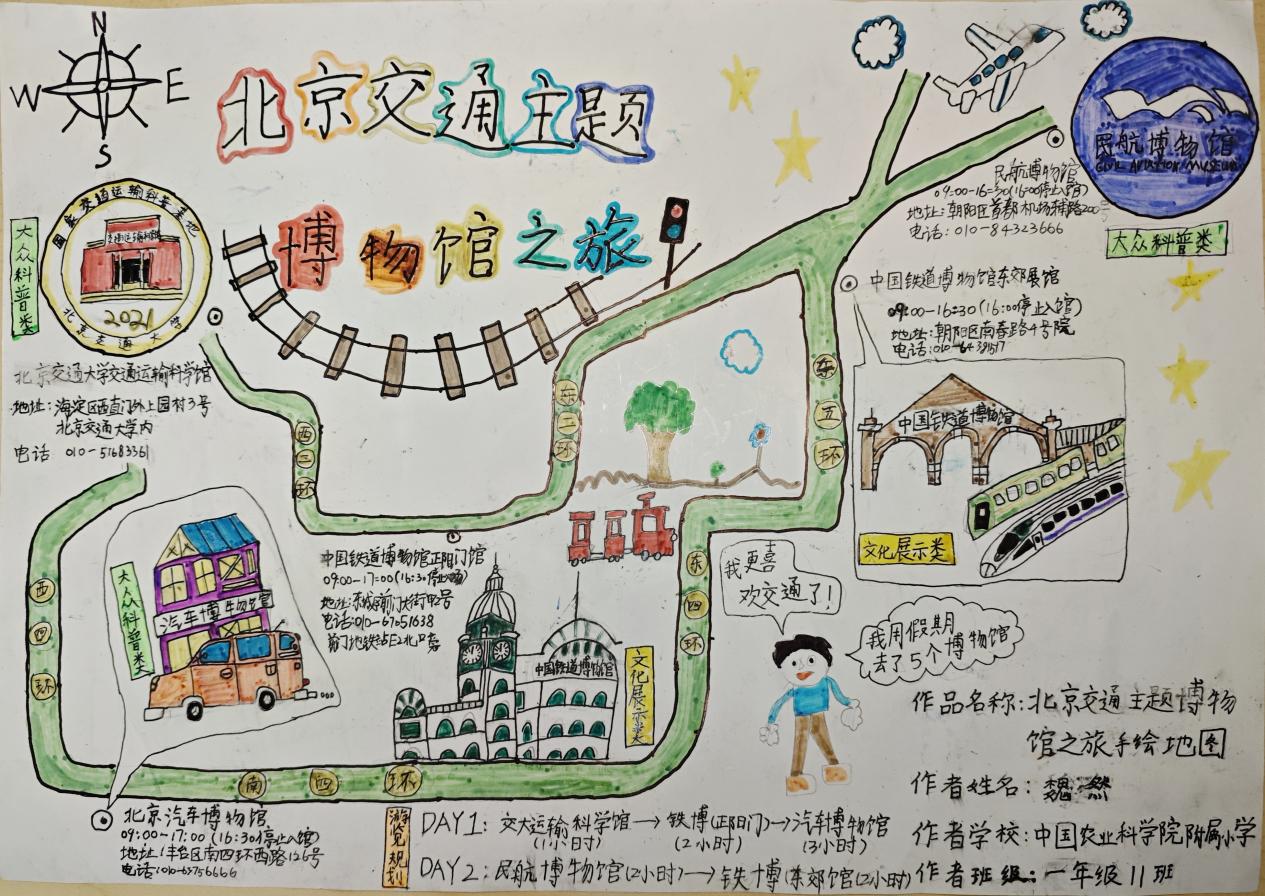 N
W
E
S
北京交通主题
博物馆之旅
国家交通运输科普基地
2021
北京交通大学
大众科普类
北京交通大学交通运输科学馆
地址:海淀区西直门外上园村3号
北京交通大学内
电话 010-51683361
民航博物馆
Civil Aviation Museum
民航博物馆
09:00-16:30(16:00停止入馆)
地址:朝阳区首都机场辅路200号
电话:010-84323666
大众科普类
中国铁道博物馆东郊展馆
09:00-16:30(16:00停止入馆)
地址:朝阳区南春路4号院
电话:010-64391517
中国铁道博物馆
文化展示类
西三环
东二环
东五环
西四环
东四环
南四环
中国铁道博物馆正阳门馆
09:00-17:00(16:30停止入场)
电话:010-67051638
中国铁道博物馆
文化展示类
大众科普类
汽车博物馆
北京汽车博物馆
09:00-17:00(16:30停止入馆)
地址:丰台区南四环西路126号
电话:010-63756666
我更喜
欢交通了!
我用假期
去了5个博物馆
作品名称:北京交通主题博物
馆之旅手绘地图
作者姓名:魏然
作者学校:中国农业科学院附属小学
作者班级:一年级11班
游览规划
DAY1:交大运输科学馆→铁博(正阳门)→汽车博物馆
(1小时) (2小时) (3小时)
DAY2:民航博物馆(2小时)→铁博(东郊馆(2小时)